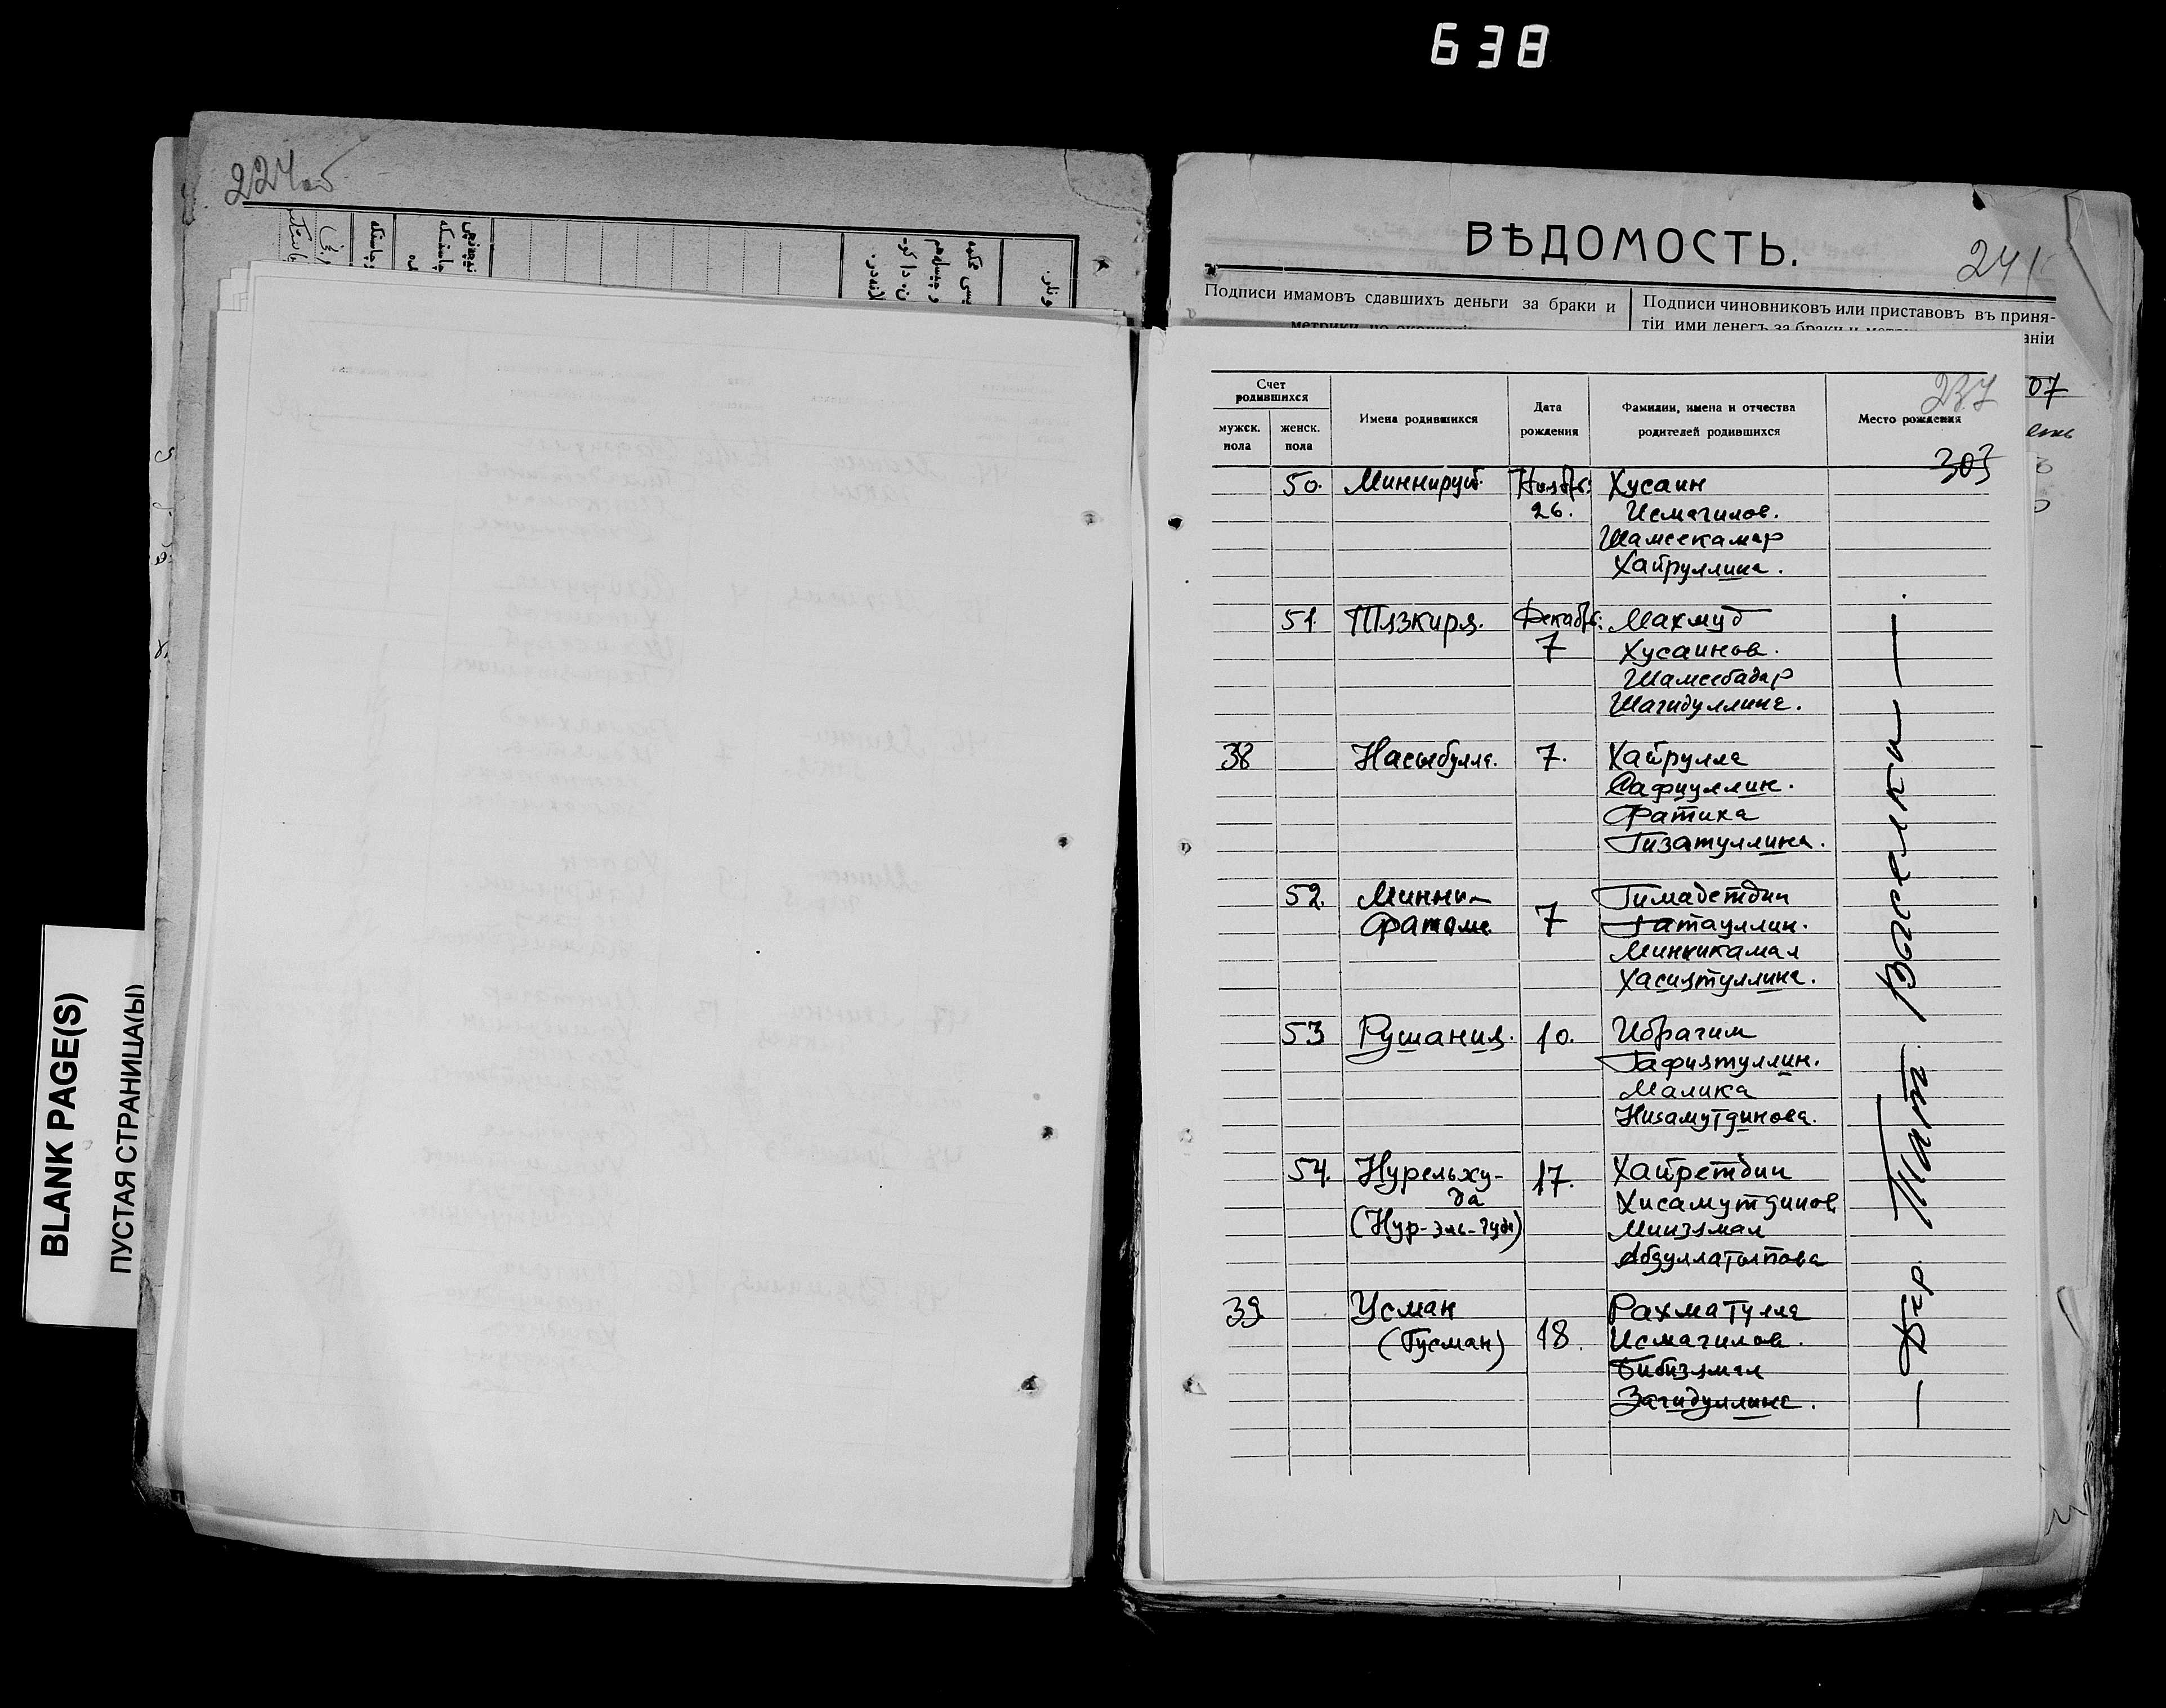 638
224об
ВѢДОМОСТЬ.
241
Подписи имамовъ сдавшихъ деньги за браки и
Подписи чиновниковъ или приставовъ въ приня-
тіи ими денегъ за браки и
аніи
07
237
303
Счет
родившихся
мужск.
пола
женск.
пола
Имена родившихся
Дата
рождения
Фамилии, имена и отчества
родителей родившихся
Место рождения
50. Миннируй. Ноябрь: Хусаин
26. Исмагилов.
Шамсекамар
Хайруллина.
51. Тязкиря. Декабрь: Махмуд
7 Хусаинов.
Шамсебадар
Шагидуллина.
38 Насыбулла. 7. Хайрулла
Сафиуллин.
Фатиха
Гизатуллина.
52. Минни- Гимадетдин
Фатыма. 7 Гатауллин.
Минникамал
Хасиятуллина.
53 Рушания. 10. Ибрагим
Гафиятуллин.
Малика
Низамутдинова.
54. Нурельху- 17. Хайретдин
да Хисамутдинов
(Нур-эль-гуда) Минзямал
Абдуллатыпова
39 Усман Рахматулла
(Гусман) 18. Исмагилов.
Бибизямал
Загидуллина.
— Дер. Тат. Васелки —
BLANK PAGE(S)
ПУСТАЯ СТРАНИЦА(Ы)